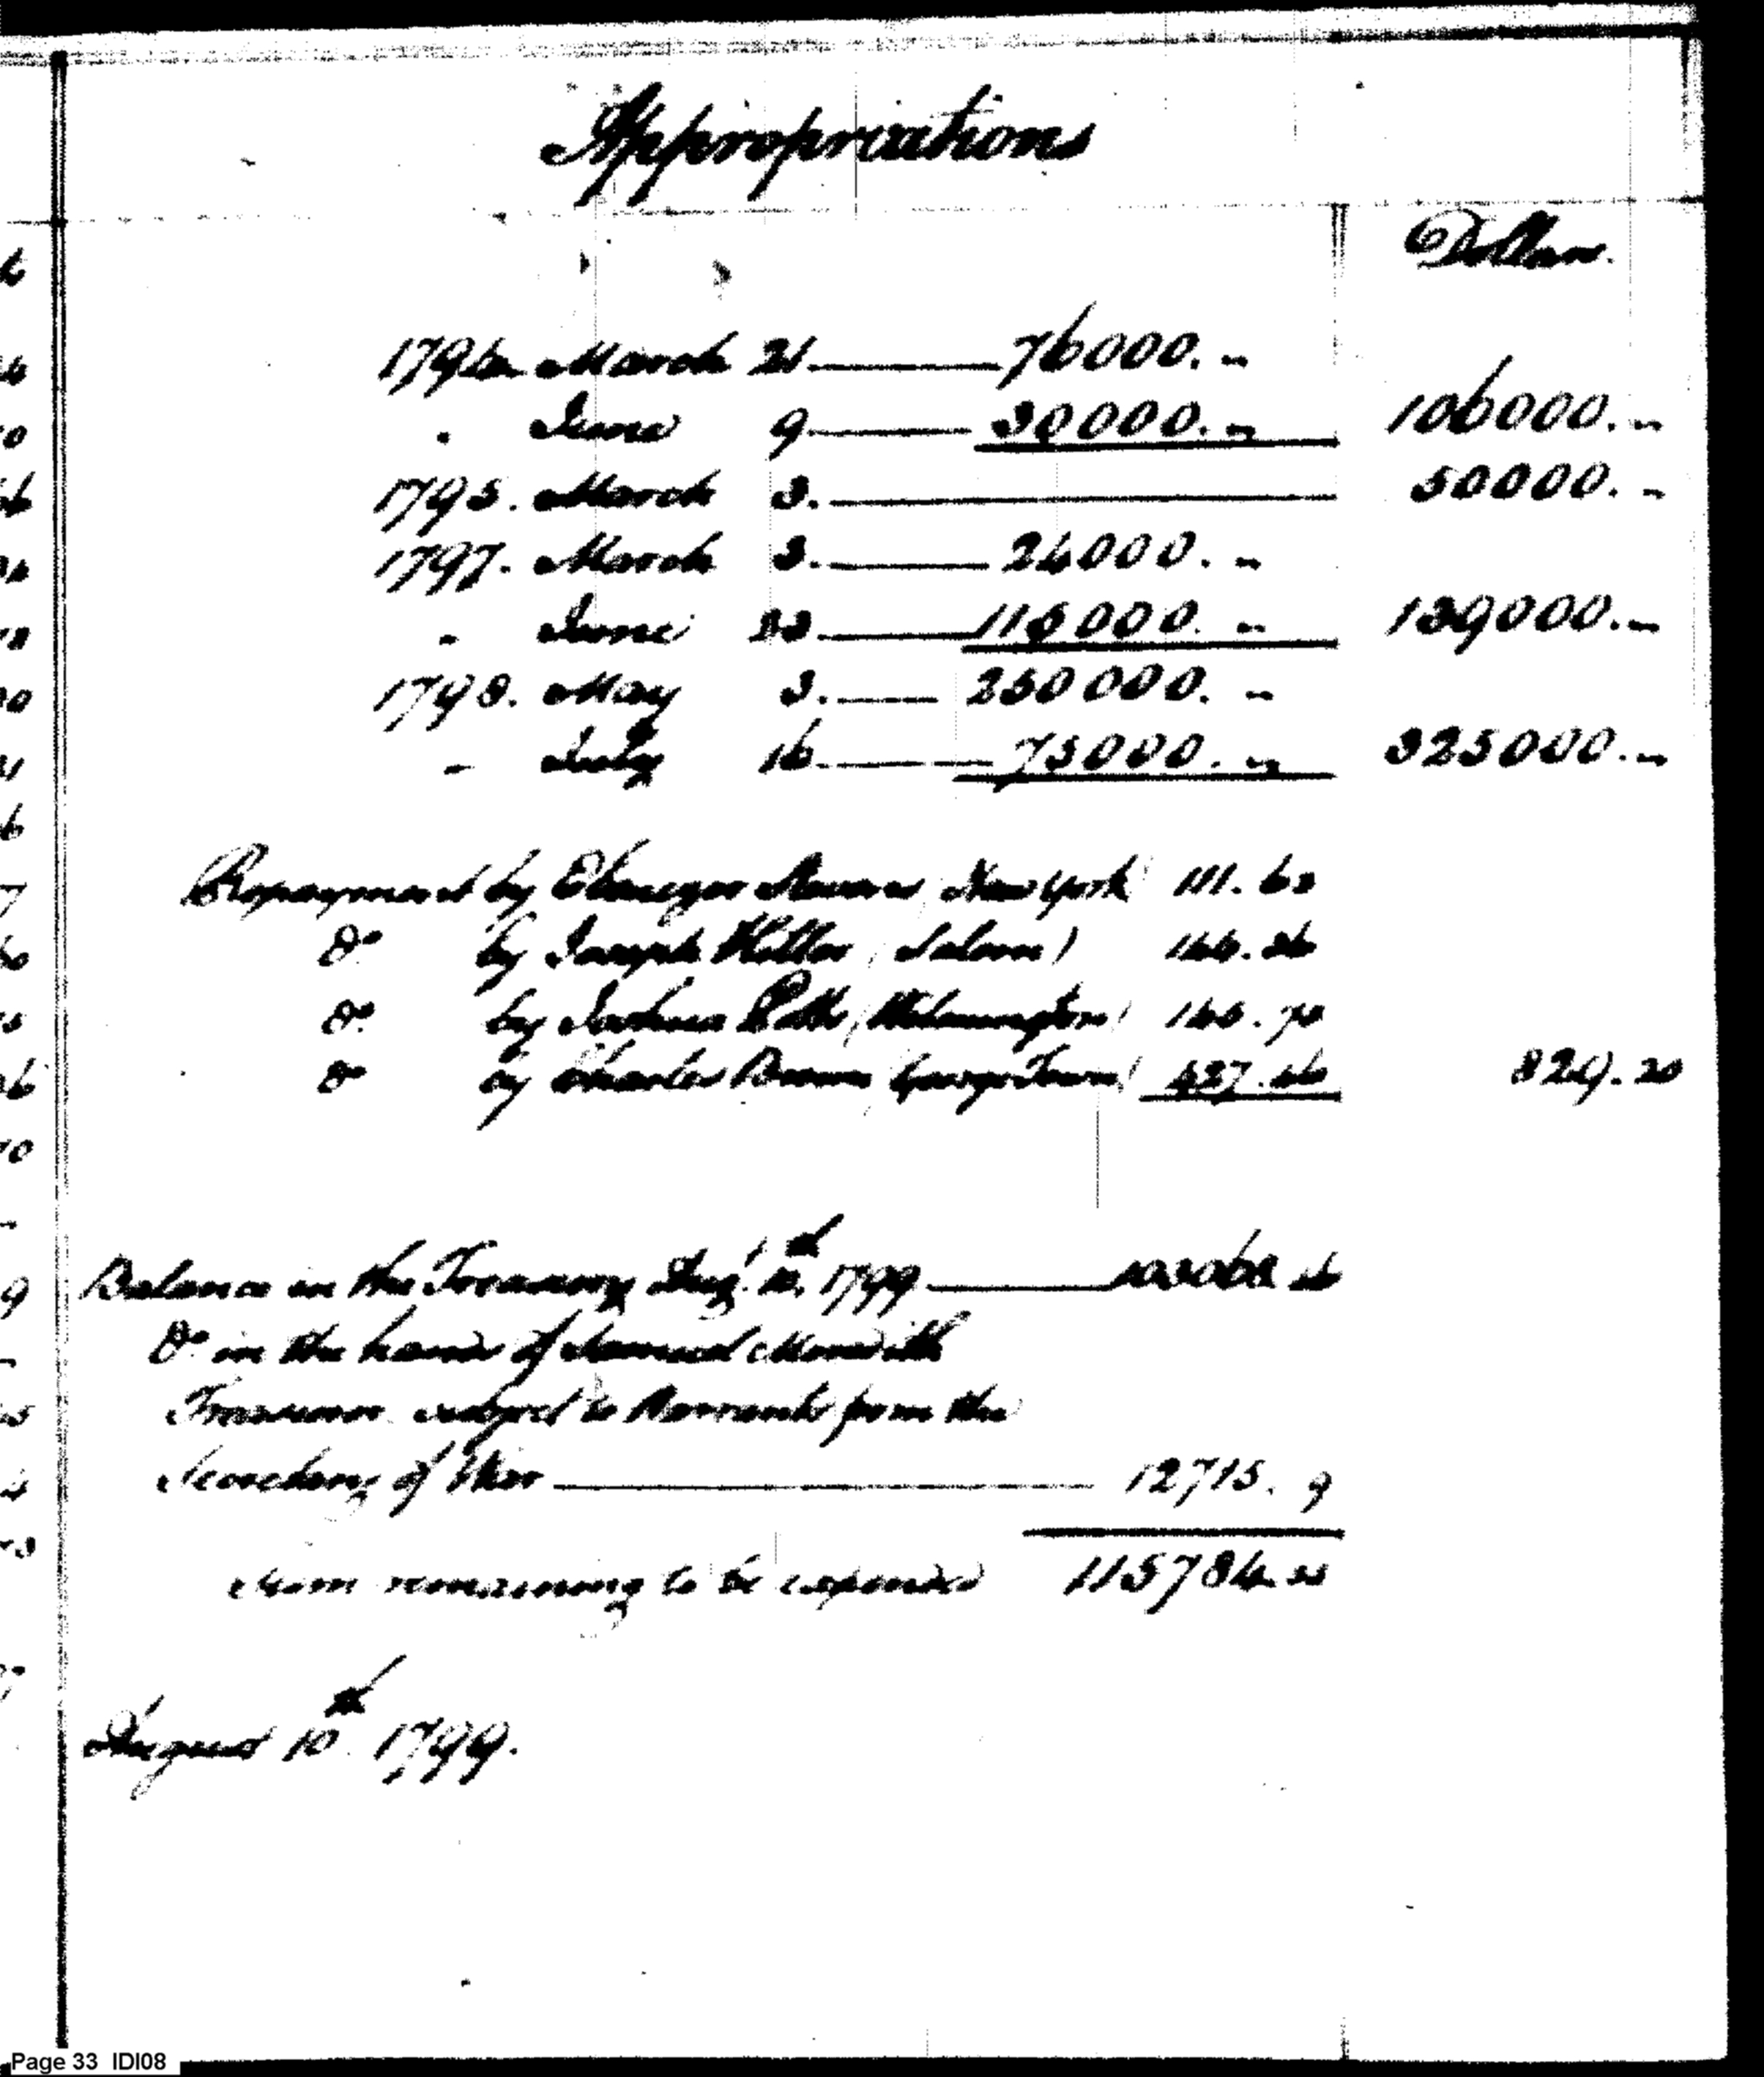 Appropriations
Dollars.
1794 March 21 76000. "
" June 9 30000. " 106000. "
1795. March 3. 50000. "
1797. March 3. 24000. "
" June 23 115000. " 139000. "
1798. May 3. 250000. "
" July 16 75000. " 325000. "
Repayment by Ebenezer New York 111. 62
Do by Joseph Hiller, Salem)
Do by Joshua Potts, (Wilmington)
Do by Charles Brown Georgetown) 829. 20
Balance in the Treasury Augt. 10th 1799
Do in the hands of Samuel Meredith
Treasurer subject to Warrants from the
Secretary of War 12715. 9
Sum remaining to be expended 115784
August 10th 1799.
Page 33 IDI08